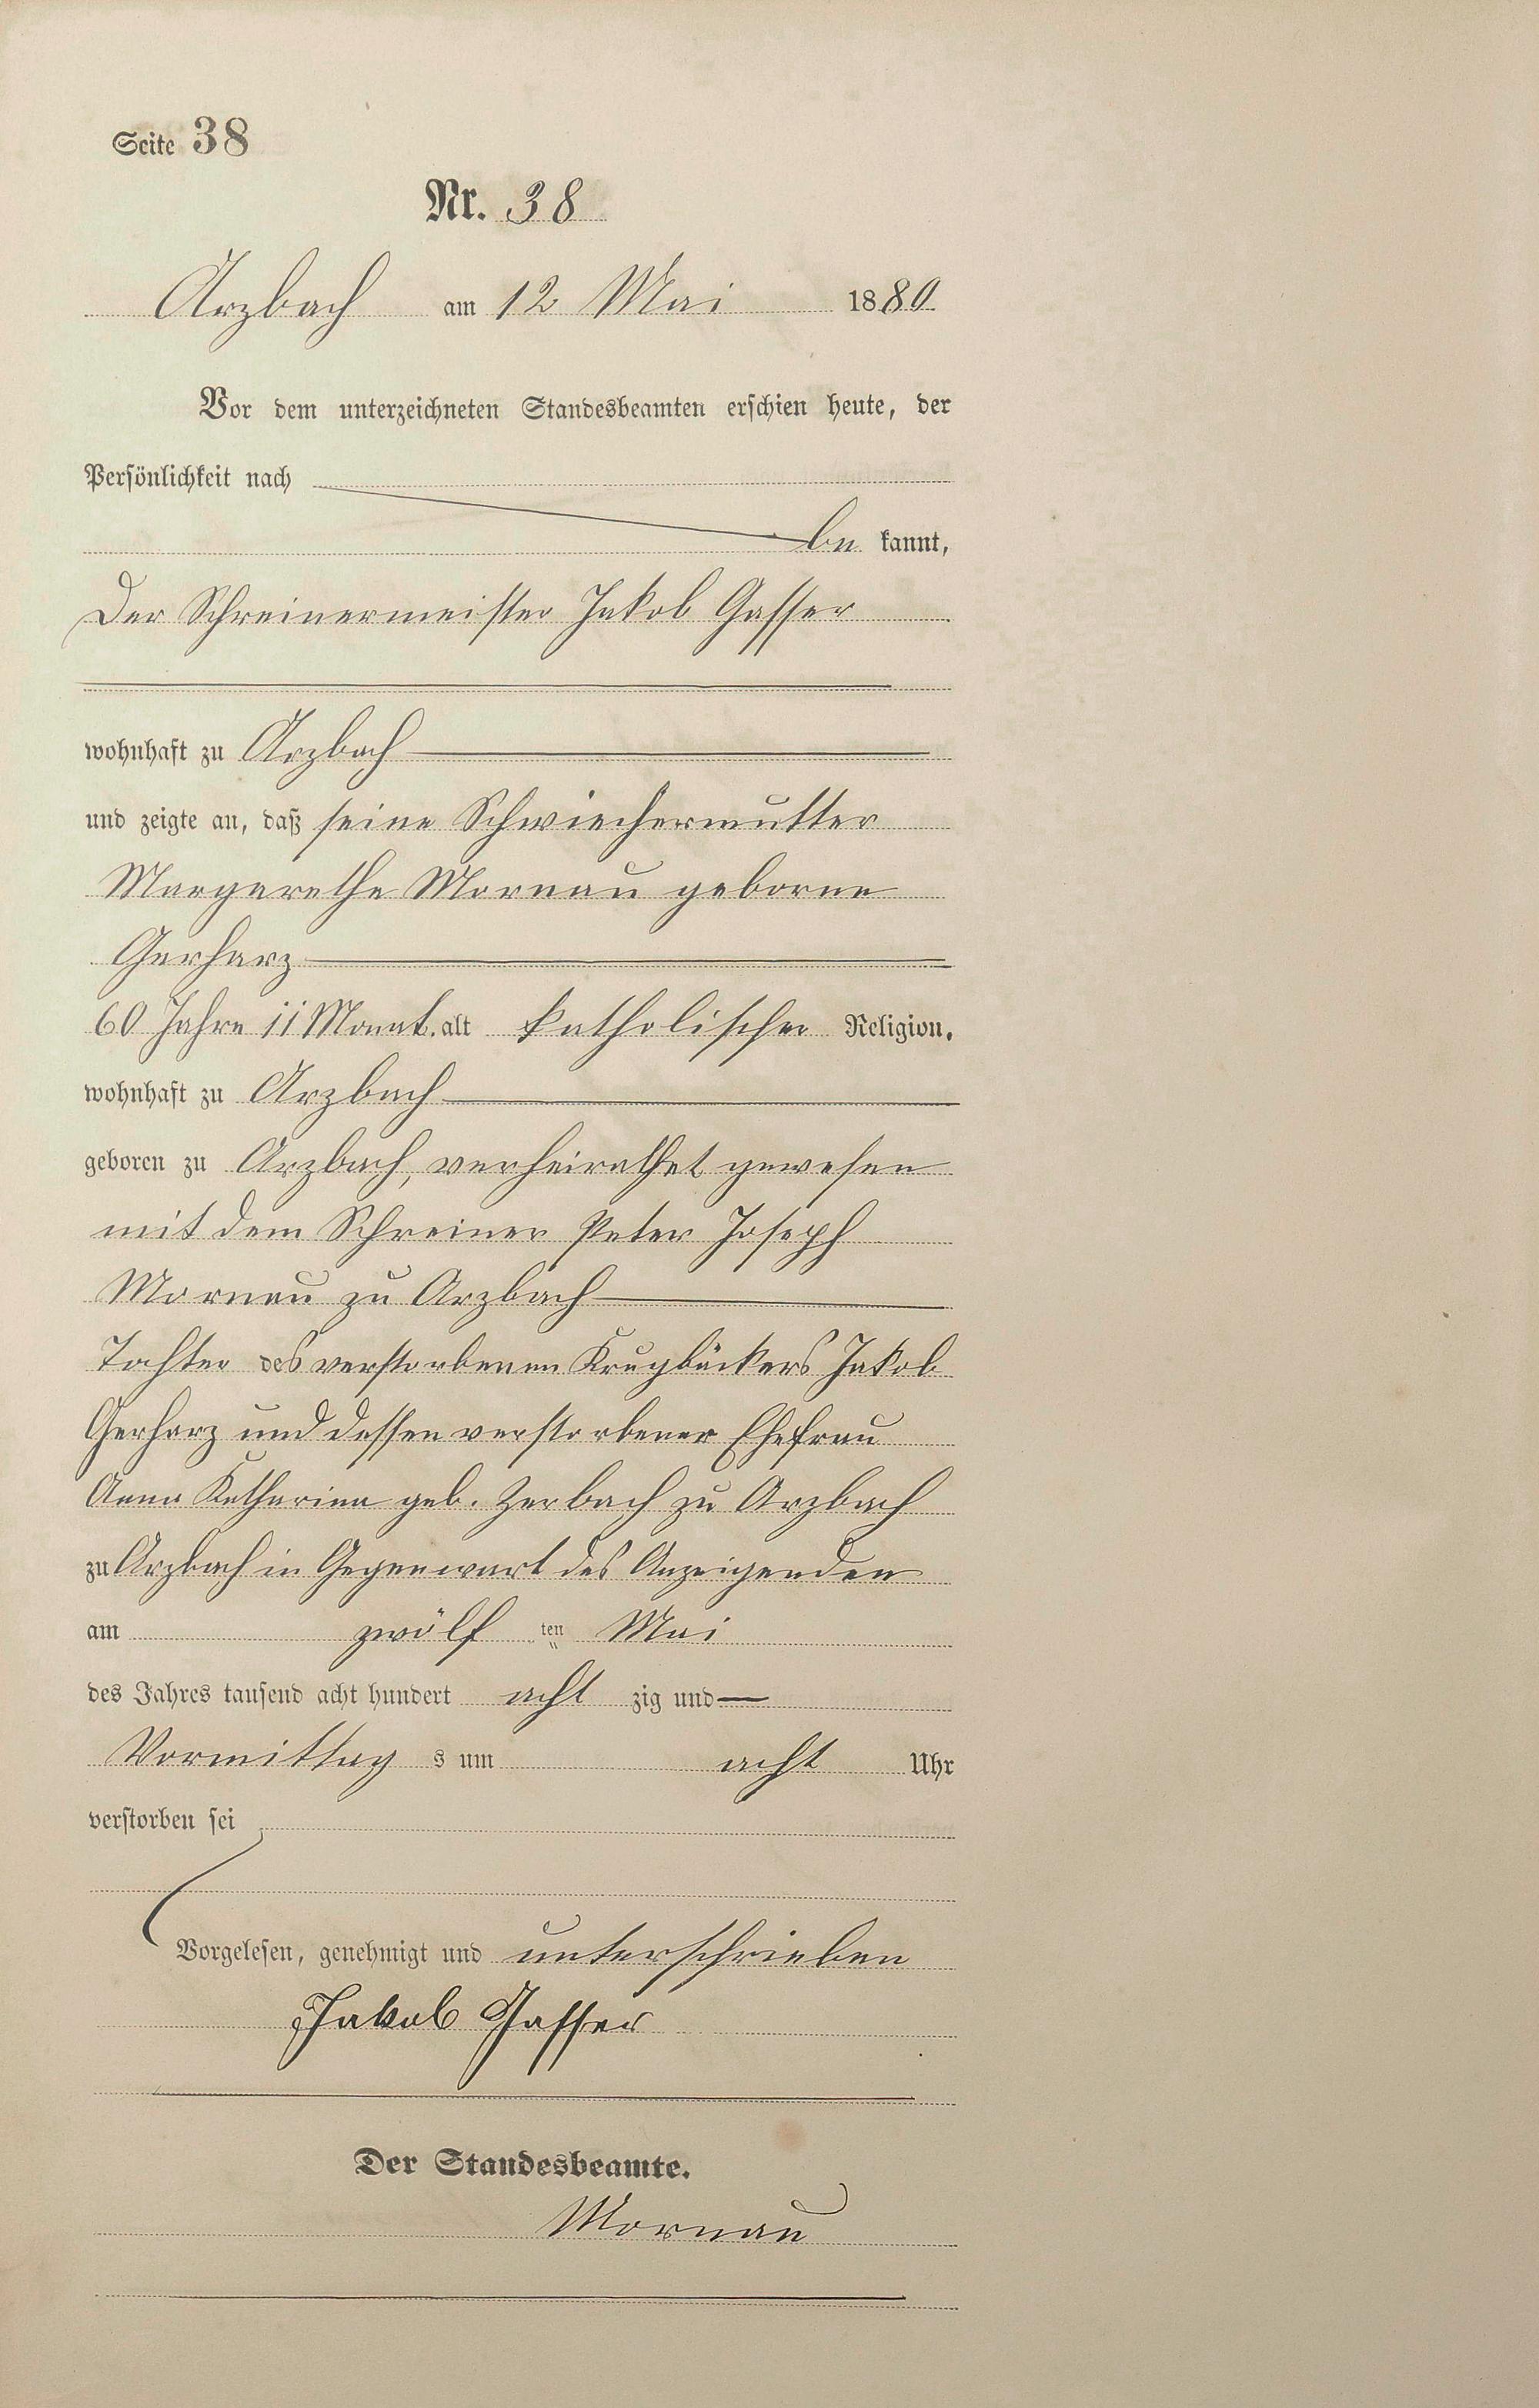 Seite 38
Nr. 38
Arzbach am 12 Mai 1880
Vor dem unterzeichneten Standesbeamten erschien heute, der
Persönlichkeit nach
be kannt,
Der Schreinermeister Jakob Gasser
wohnhaft zu Arzbach
und zeigte an, daß seine Schwiechermutter
Margarethe Mornau geborne
Gerharz
60 Jahre 11 Monat. alt katholischer Religion.
wohnhaft zu Arzbach
geboren zu Arzbach, verheirathet gewesen
mit dem Schreiner Peter Joseph
Mornau zu Arzbach
Tochter des verstorbenen Krugbäckers Jakob
Gerharz und dessen verstorbener Ehefrau
Anna Katharina geb. Zerbach zu Arzbach
zu Arzbach in Gegenwart des Anzeigenden
am zwölf ten Mai
des Jahres tausend acht hundert acht zig und —
Vormittag s um acht Uhr
verstorben sei
Vorgelesen, genehmigt und unterschrieben
Jakob Gasser
Der Standesbeamte.
Mornau